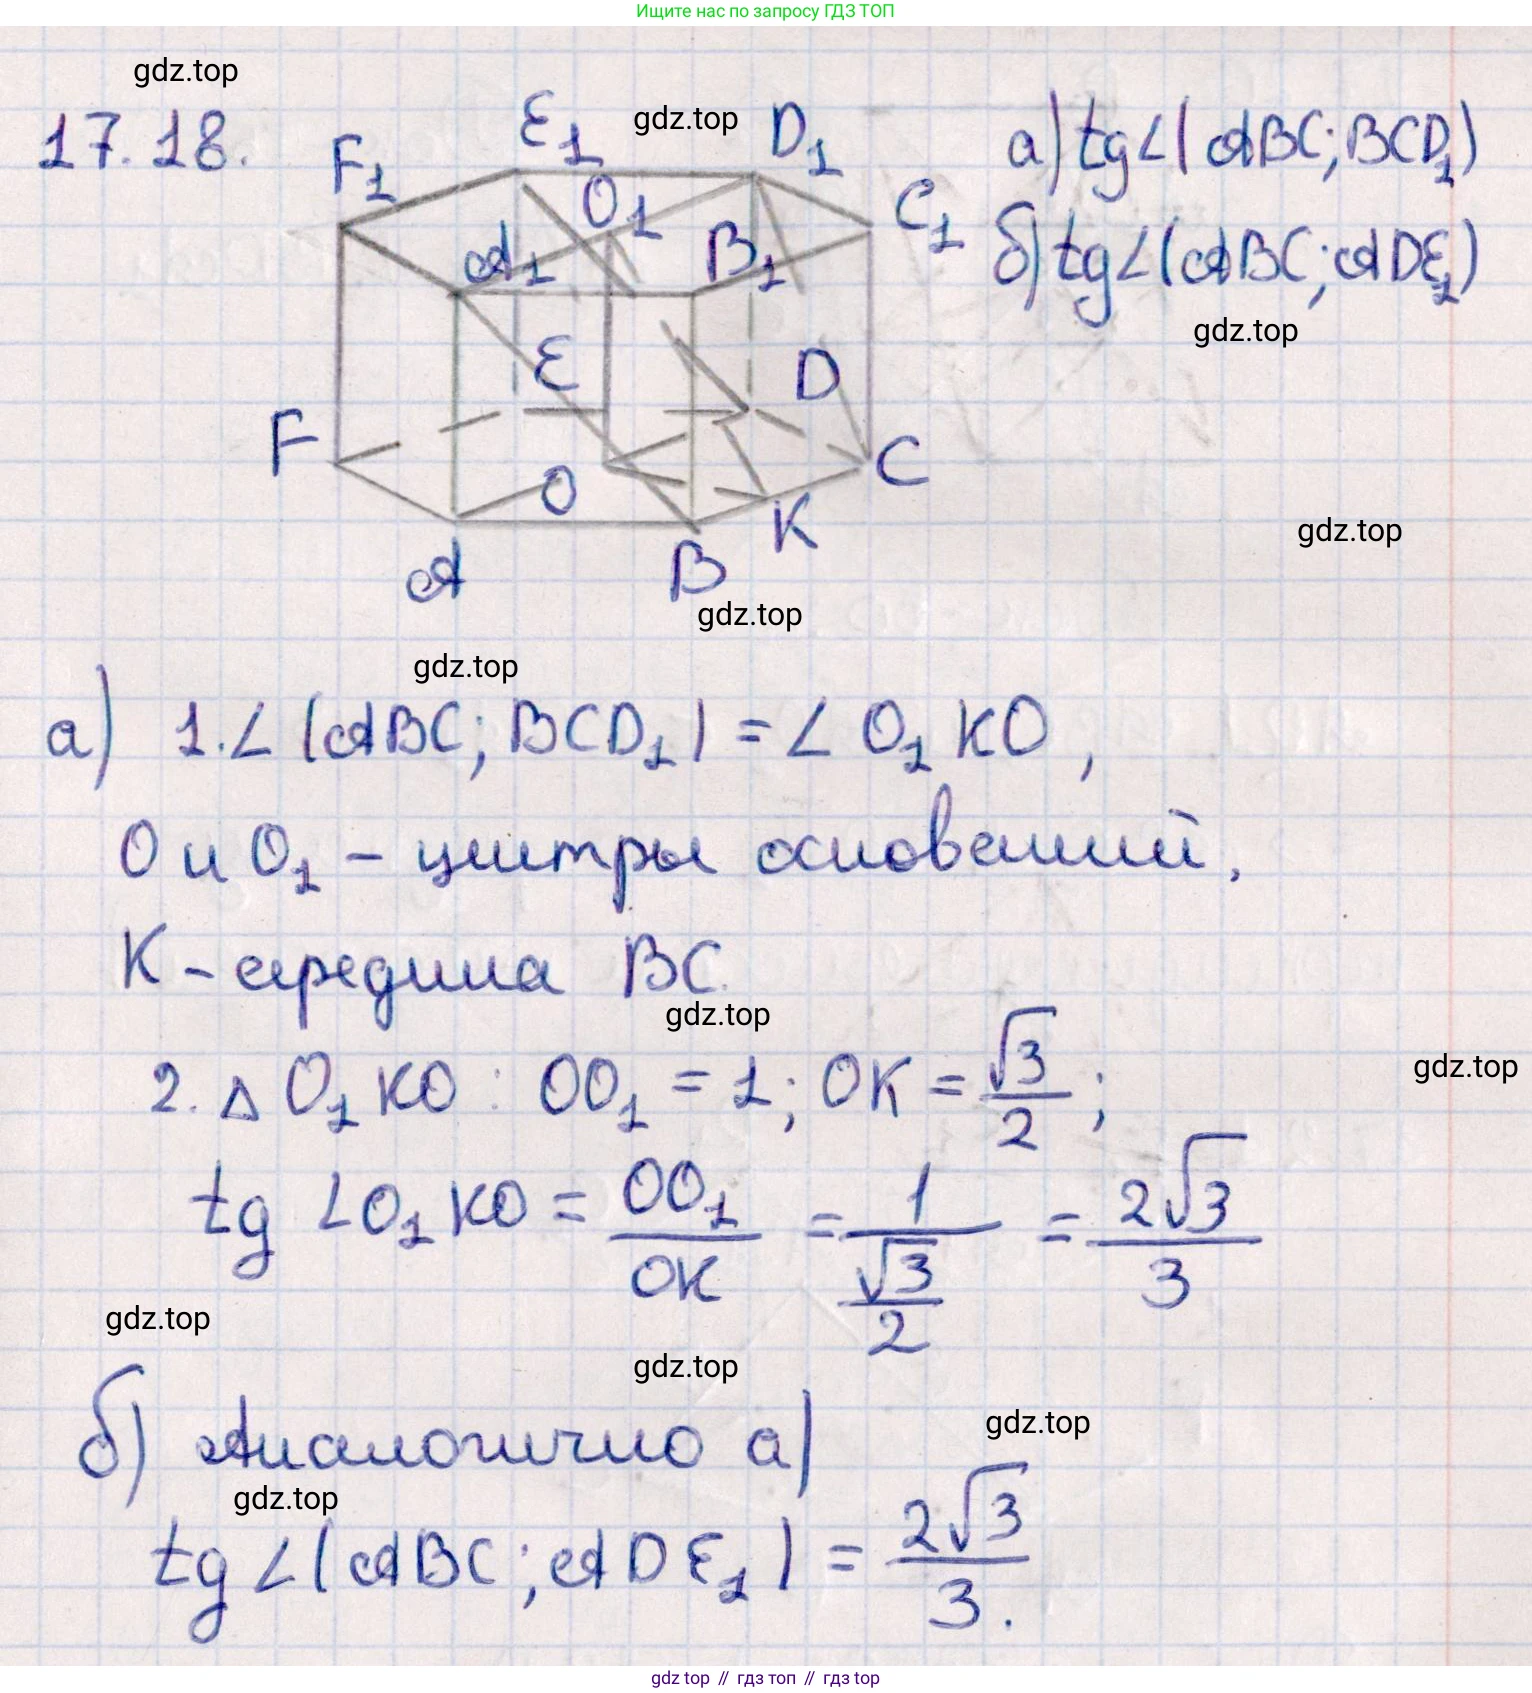 Ищите нас по запросу ГДЗ ТОП
gdz.top
17.18.
F₁
E₁
gdz.top
D₁
а) tg∠(ABC; BCD₁)
O₁
C₁
A₁
B₁
б) tg∠(ABC; ADE₁)
gdz.top
E
D
F
C
O
K
gdz.top
A
B
gdz.top
gdz.top
а) 1.∠(ABC; BCD₁) = ∠O₁KO,
O и O₁ – центры оснований,
K – середина BC.
gdz.top
2. △ O₁KO : OO₁ = 1; OK = √3/2;
gdz.top
tg ∠O₁KO = OO₁/OK = 1/(√3/2) = 2√3/3
gdz.top
gdz.top
б) Аналогично а)
gdz.top
gdz.top
tg∠(ABC; ADE₁) = 2√3/3.
gdz.top // гдз топ // гдз top